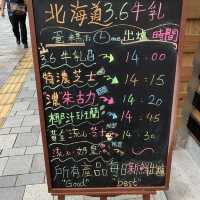 北海道3.6牛乳
蛋糕 出爐時間
3.6牛乳 → 14:00
特濃芝士 → 14:15
濃朱古力 → 14:20
椰汁斑蘭 → 14:45
黃金流心芝士 → 14:30
流心奶皇
所有產品每日新鮮出爐
"Good" "best"